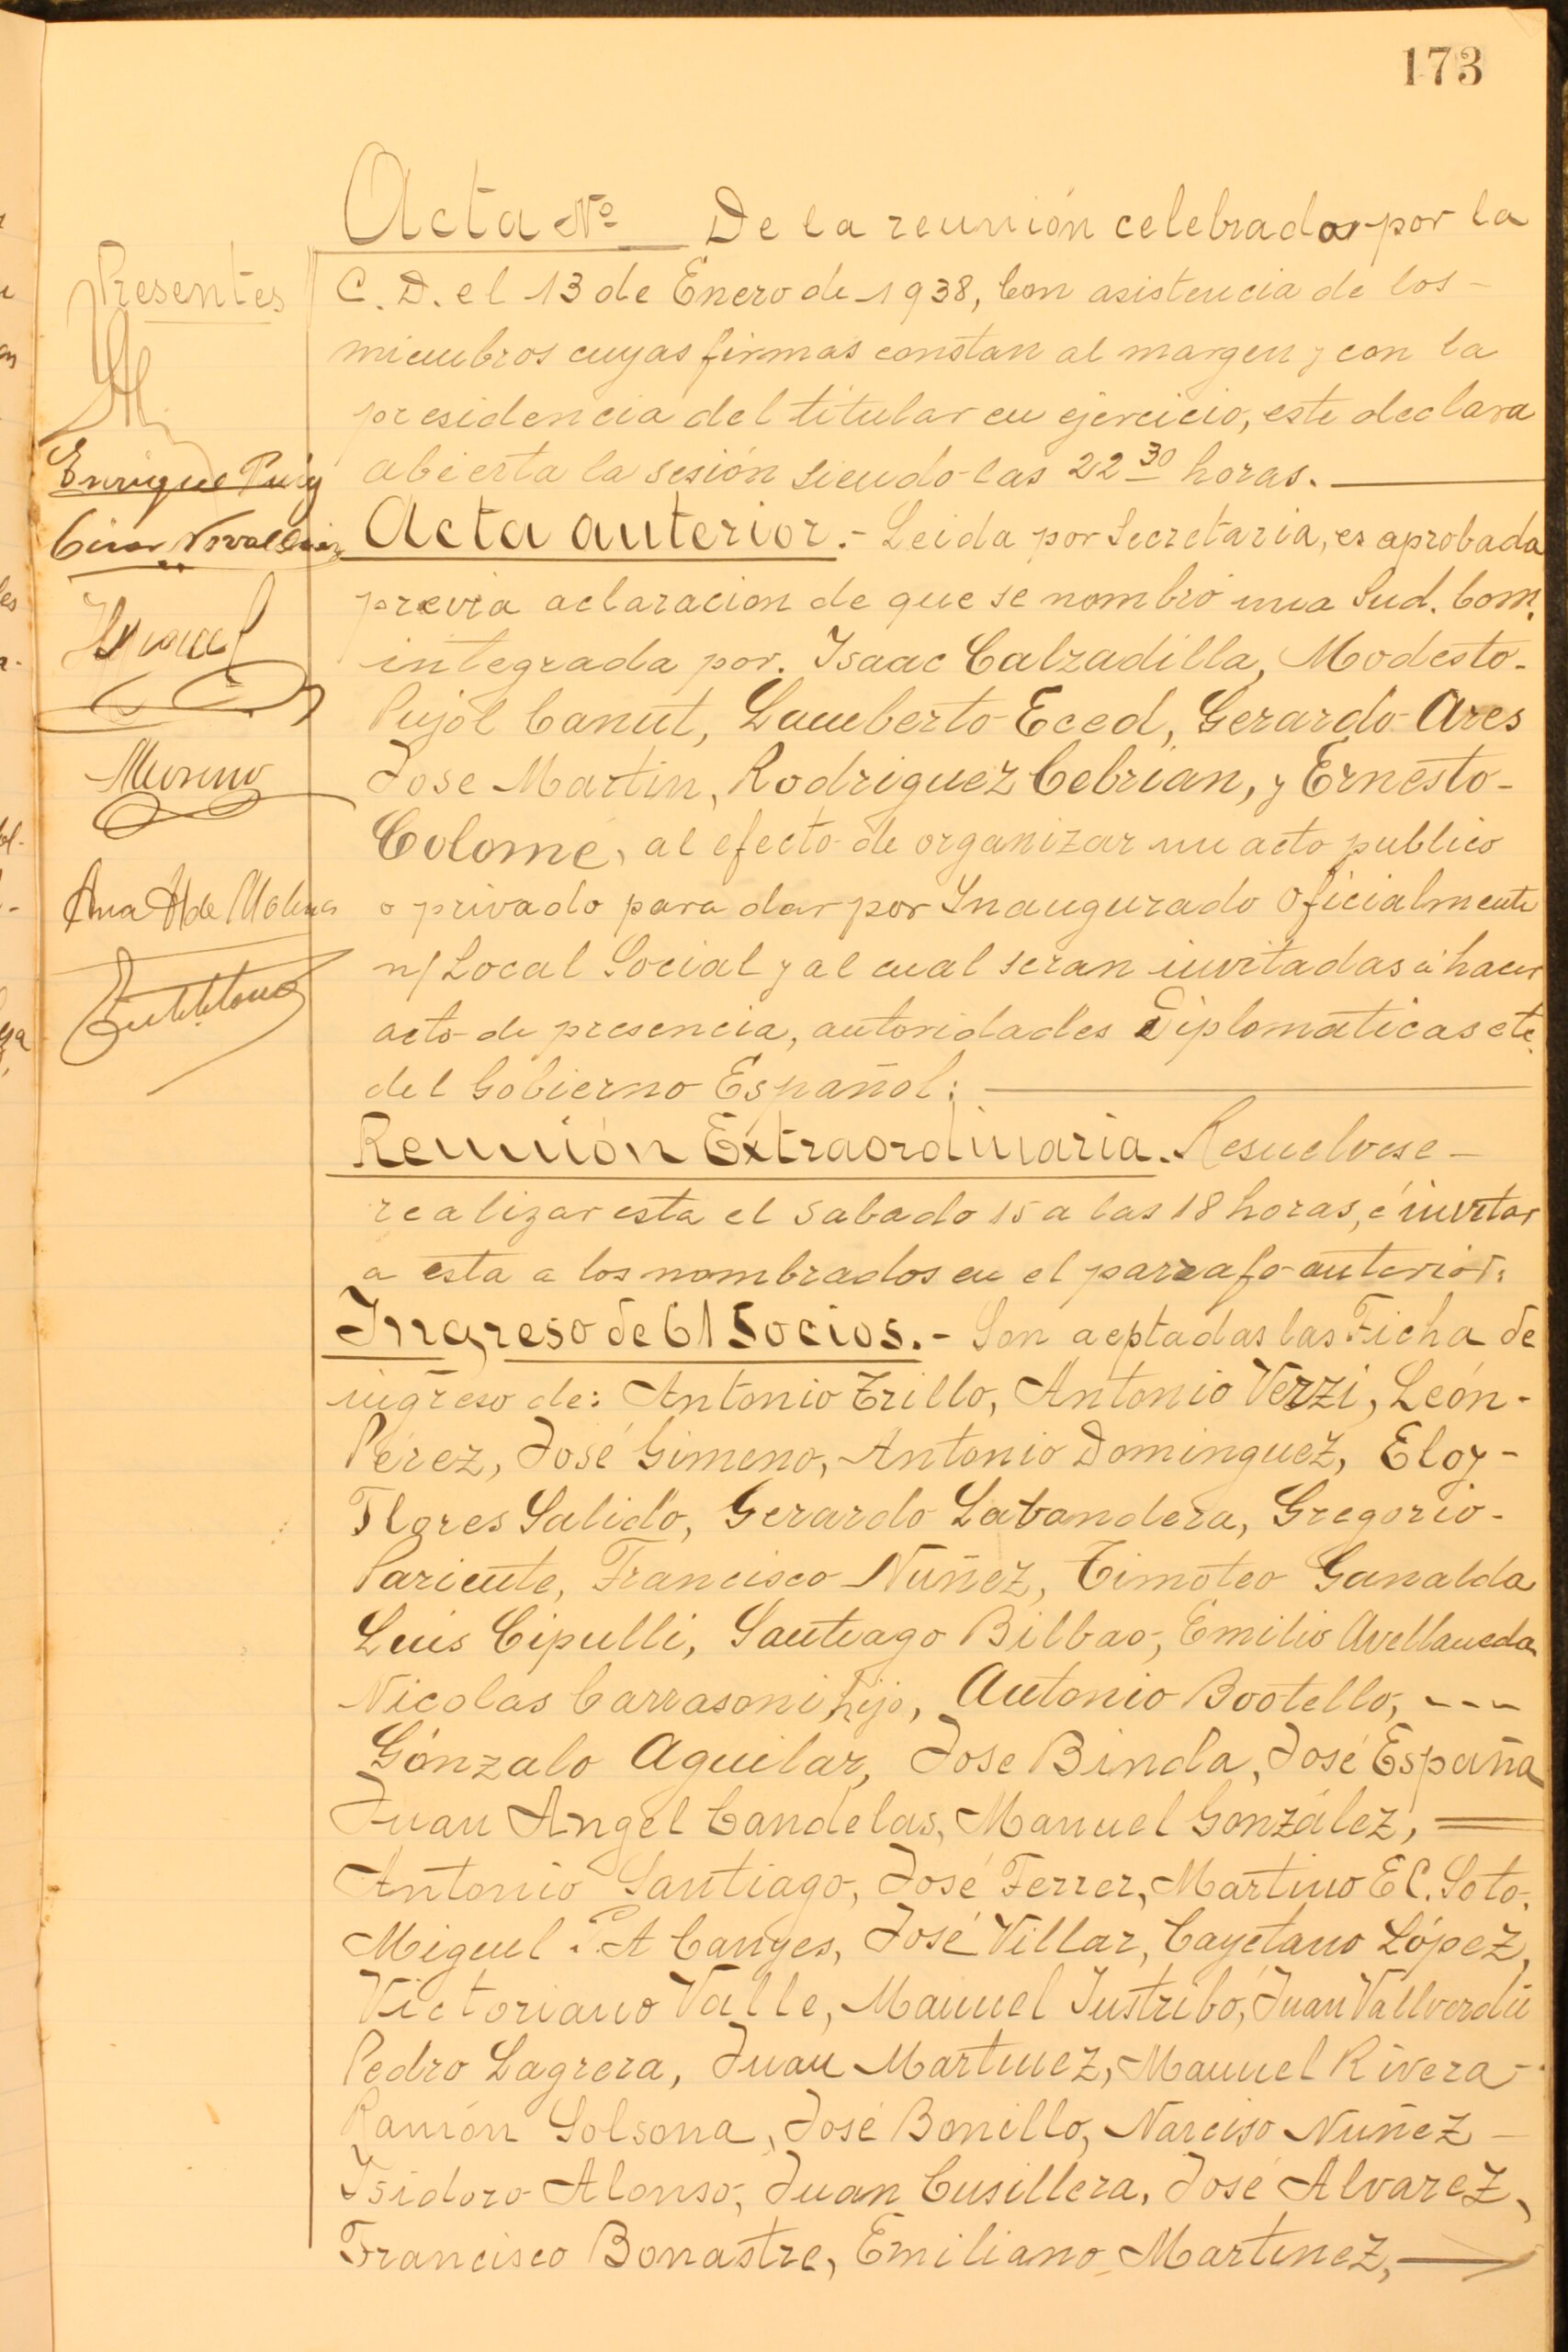 173
Acta Nº De la reunión celebrada por la
Presentes
C. D. el 13 de Enero de 1938, Con asistencia de los -
miembros cuyas firmas constan al margen y con la
presidencia del titular en ejercicio, este declara
abierta la sesión siendo las 22 30 horas.
Enrique Puig
Acta anterior.- Leida por Secretaria, es aprobada
previa aclaracion de que se nombró una Sud. Com.
integrada por. Isaac Calzadilla, Modesto-
Pujol Canut, Lamberto Eced, Gerardo Ares
Jose Martin, Rodriguez Cebrian, y Ernesto-
Moreno
Colomé, al efecto de organizar un acto publico
Ana A de Molina
o privado para dar por Inaugurado Oficialmente
n/ Local Social y al cual seran invitadas á hacer
acto de presencia, autoridades Diplomáticas etc.
del Gobierno Español:
Reunión Extraordinaria. Resuelvese -
realizar esta el sabado 15 a las 18 horas, é invitar
a esta a los nombrados en el parrafo anterior.
Ingreso de 61 Socios.- Son aeptadas las Ficha de
ingreso de: Antonio Trillo, Antonio Verzi, León-
Pérez, José Gimeno, Antonio Dominguez, Eloy-
Flores Salido, Gerardo Labandera, Gregorio-
Pariente, Francisco Nuñez, Timoteo Ganalda
Luis Cipulli, Santiago Bilbao, Emilio Avellaneda
Nicolas Carrasoni hijo, Antonio Bootello, ---
Gónzalo Aguilar, Jose Binda, José España
Juan Angel Candelas, Manuel González,
Antonio Santiago, José Ferrer, Martino E C. Soto.
Miguel P. A Canyes, José Villar, Cayetano López,
Victoriano Valle, Manuel Justribó, Juan Vallverdú
Pedro Lagrera, Juan Martinez, Manuel Rivera -
Ramón Solsona, José Bonillo, Narciso Nuñez -
Isidoro Alonso, Juan Cusillera, José Alvarez,
Francisco Bonastre, Emiliano Martinez,